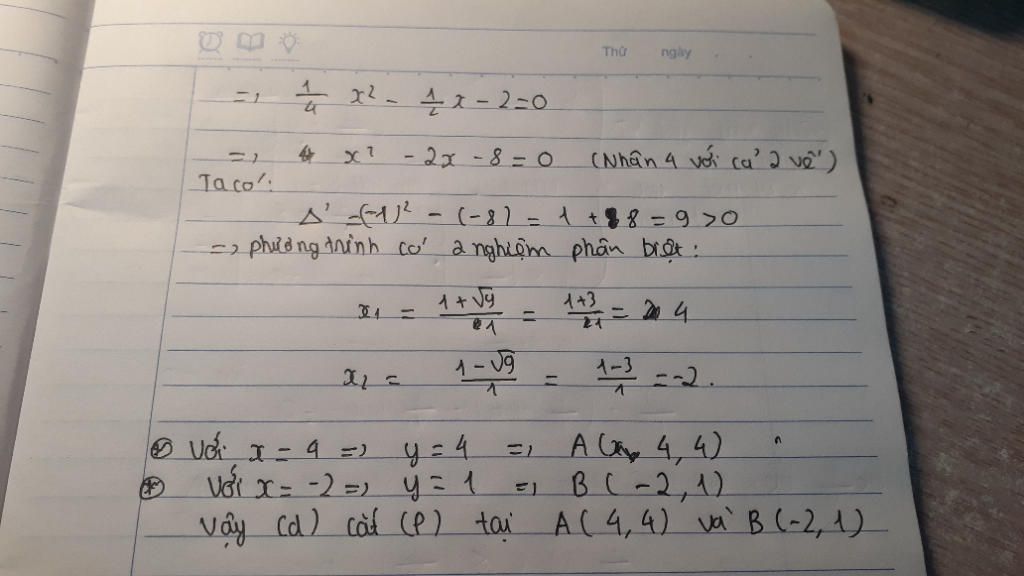 Thứ ngày . .
=> 1/4 x² - 1/2 x - 2 = 0
=> x² - 2x - 8 = 0 (Nhân 4 với cả 2 vế)
Ta có:
Δ' = (-1)² - (-8) = 1 + 8 = 9 > 0
=> phương trình có 2 nghiệm phân biệt:
x₁ = (1+√9)/1 = (1+3)/1 = 4
x₂ = (1-√9)/1 = (1-3)/1 = -2.
Với x = 4 => y = 4 => A( 4, 4)
Với x = -2 => y = 1 => B(-2, 1)
Vậy (d) cắt (P) tại A(4, 4) và B(-2, 1)